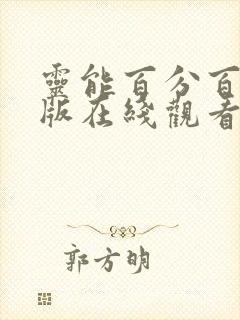 靈能百分百
版在綫觀看
郭方明